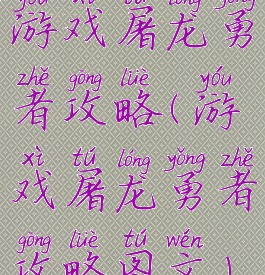 yóu xì tú lóng yǒng
游戏屠龙勇
zhě gōng lüè yóu
者攻略(游
xì tú lóng yǒng zhě
戏屠龙勇者
gōng lüè tú wén
攻略图文)